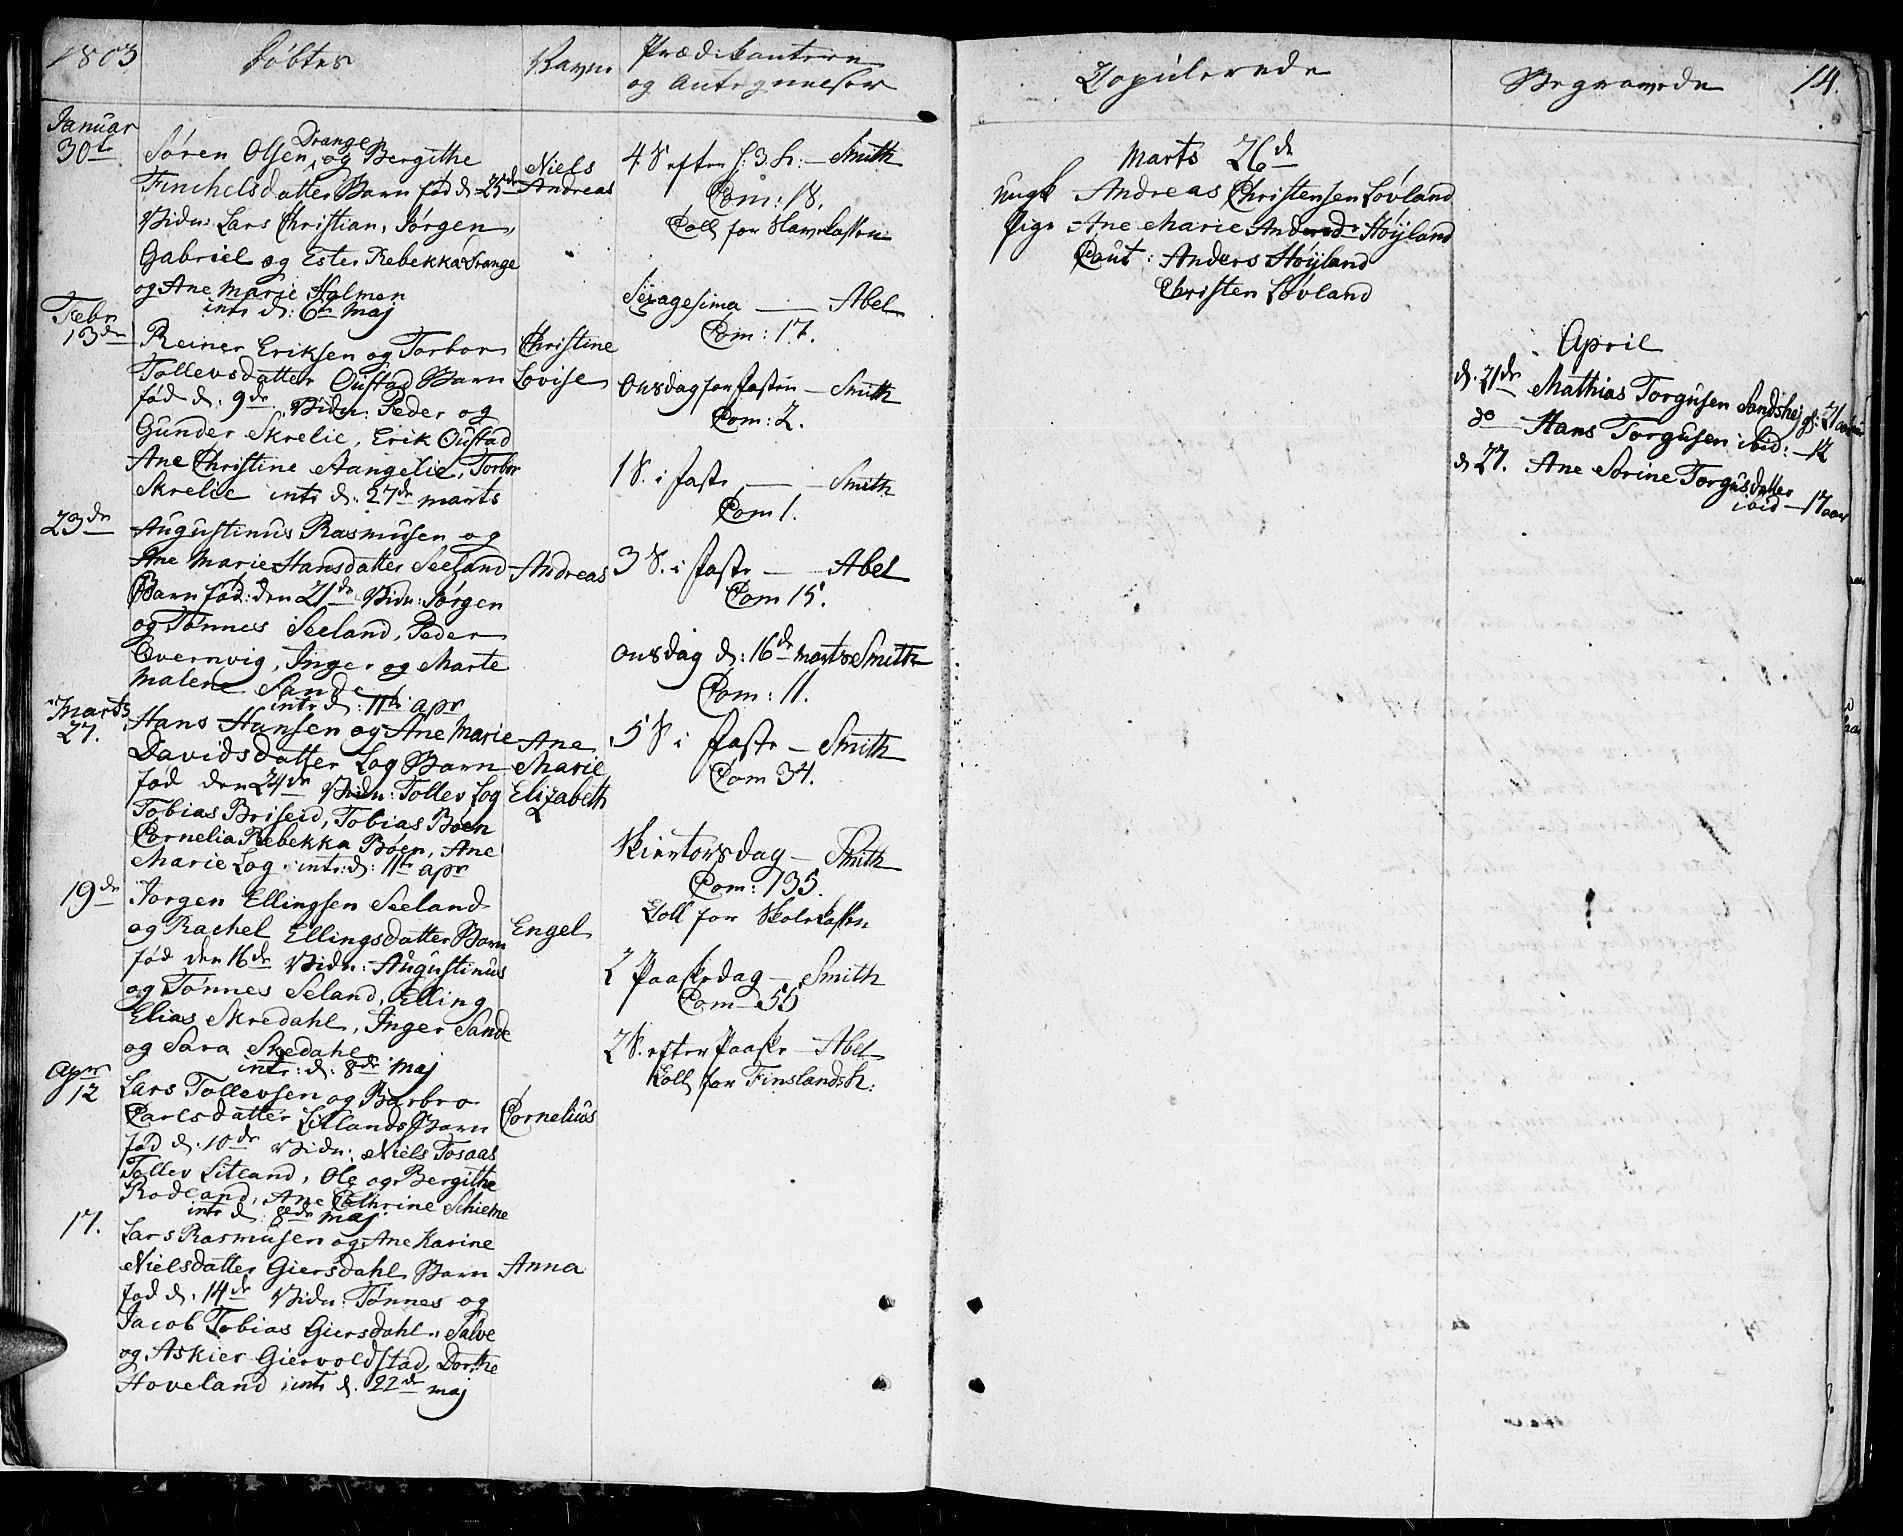 1803
Døbte
Navne
Prædikanterne
og Antegnelser
Januar
30te
Søren Olsen Drange og Bergithe
Finchelsdatter Barn fød d. 25de
Vidn: Lars Christian, Jørgen,
Gabriel og Ester Rebekka Drange
og Ane Marie Holmen
intr d: 6te Maj
Niels
Andreas
Febr
13de
Reiner Eriksen og Torbor
Tollevsdatter Oustad Barn
fød d: 9de Vidn: Peder og
Gunder Skrelie, Erik Oustad
Ane Christine Aangelie, Torbor
Skrelie intr d: 27de Marts
Christine
Lovise
23de
Augustinus Rasmusen og
Ane Marie Hansdatter Seeland
Barn fød: den 21de Vidn: Jørgen
og Tønnes Seeland, Peder
Qvernvig, Inger og Marte
Malene Sande
intr d: 11te apr
Andreas
Marts
27.
Hans Hansen og Ane Marie
Davidsdatter Log Barn
fød den 24de Vidn: Tollev Log
Tobias Briseid, Tobias Boen
Cornelia Rebekka Bøen, Ane
Marie Log. intr: d: 11te apr
Ane
Marie
Elizabeth
19de
Jørgen Ellingsen Seeland
og Rachel Ellingsdatter Barn
fød den 16de Vidn: Augustinus
og Tønnes Seland, Elling
Elias Skredahl, Inger Sande
og Sara Skedahl
intr: d: 8de Maj
Engel
Apr
12
Lars Tollevsen og Barbro
Carlsdatter Litlands Barn
fød d. 10de Vidn: Niels Tosaas
Tollev Litland, Ole og Bergithe
Rodland, Ane Cathrine Schieme
intr d: 8de Maj
Cornelius
17.
Lars Rasmusen og Ane Karine
Nielsdatter Giersdahl Barn
fød d. 14de Vidn: Tønnes og
Jacob Tobias Giersdahl, Salve
og Askier Giervoldstad, Dorthe
Hoveland intr d. 22de Maj
Anna
4 S efter h: 3 K: — Smith
Com: 18.
Coll for Slavekassen
Sexagesima — Abel
Com: 17.
Onsdag for Fasten — Smith
Com: 2.
1 S. i Faste — Smith
Com 1.
3 S. i Faste — Abel
Com 15.
Onsdag d: 16de Marts Smith
Com: 11.
5 S i Faste — Smith
Com 34.
Skiertorsdag — Smith
Com: 135.
Coll for Skolekassen
2 Paaskedag — Smith
Com — 55
2 S. efter Paaske — Abel
Koll for Finslands K:
Copulerede
Marts 26de
Ungk Andreas Christensen Løvland
Pige Ane Marie Andersdr Høyland
Caut: Anders Høyland
Christen Løvland
Begravede
14.
April
d. 21de Mathias Torgusen Sandshej gl: 21 aar
do — Hans Torgusen ibid: — 12
d 27. Ane Sorine Torgusdatter
ibid — 17 aar